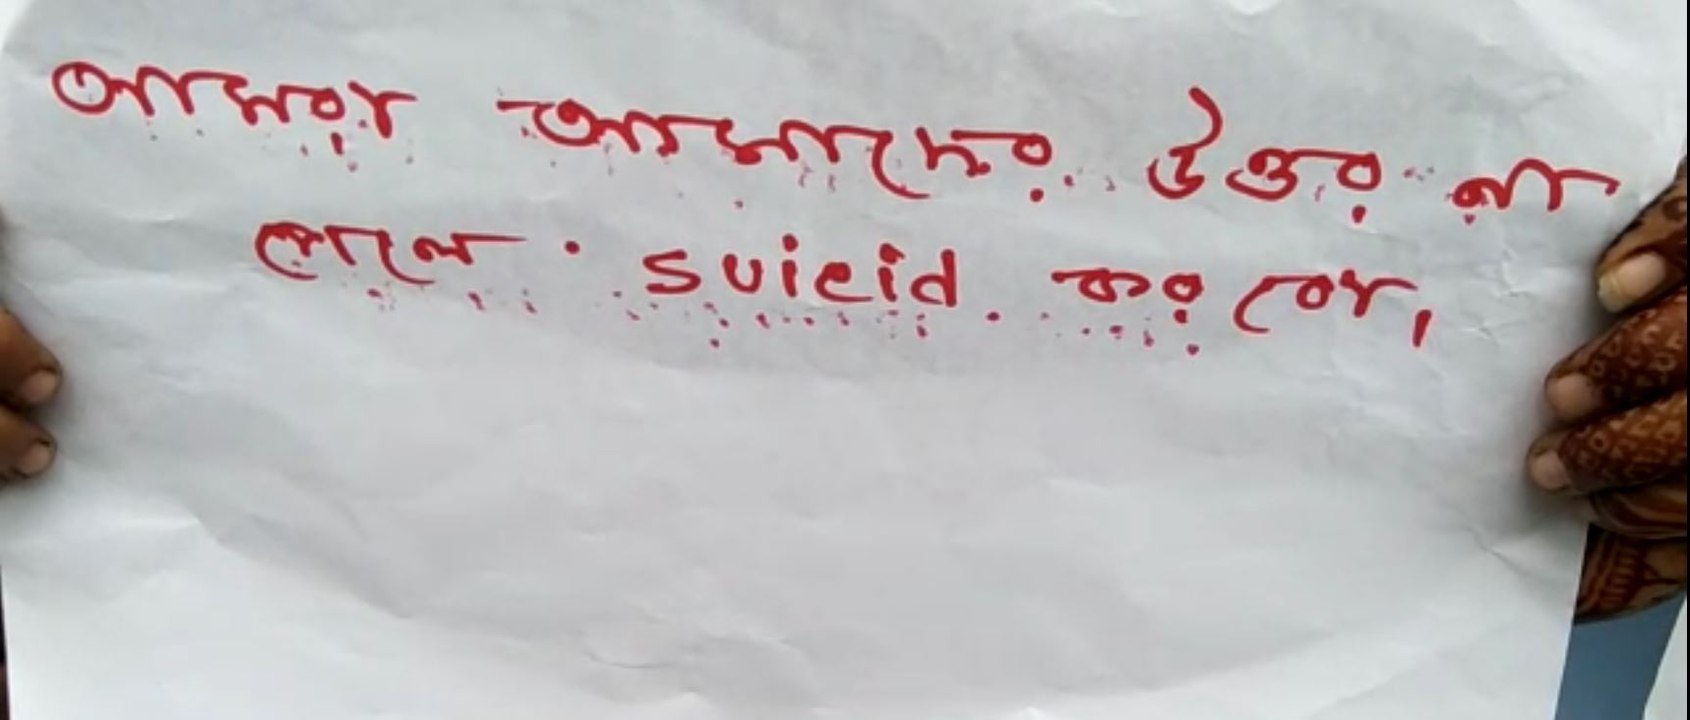 আমরা আমাদের উত্তর না
পেলে suicid করবো,